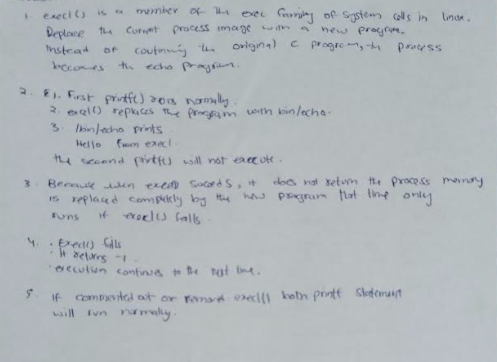 1. execl() is a member of the exec family of system calls in linux.
Replace the current process image with a new program.
Instead of coutinuing the original C program, the process
becomes the echo program.
2. 1. First printf() runs normally.
2. execl() replaces the program with bin/echo.
3. /bin/echo prints
Hello from execl
the second printf() will not execute.
3. Because when execl() succeeds, it does not return the process memory
is replaced completely by the new program that line only
runs if execl() fails.
4. . execl() fails
. It returns -1
. execution continues to the next line.
5. If commented out or remove execl() both printf statement
will run normally.